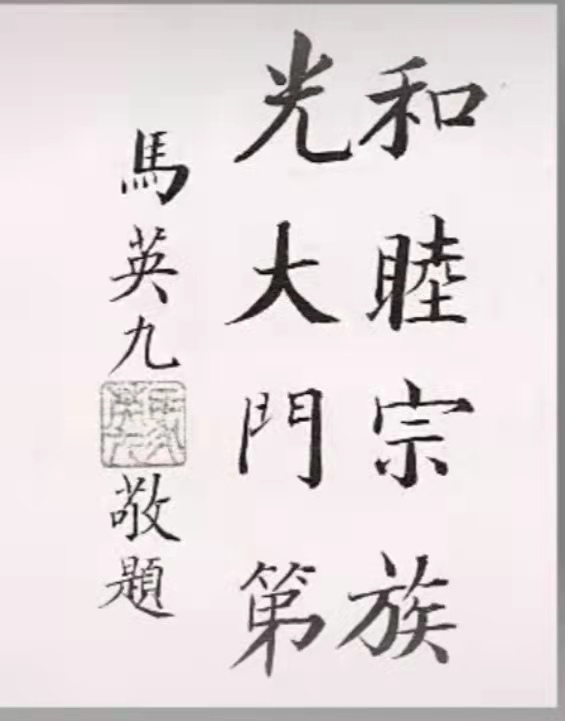 和睦宗族
光大門第
馬英九敬題